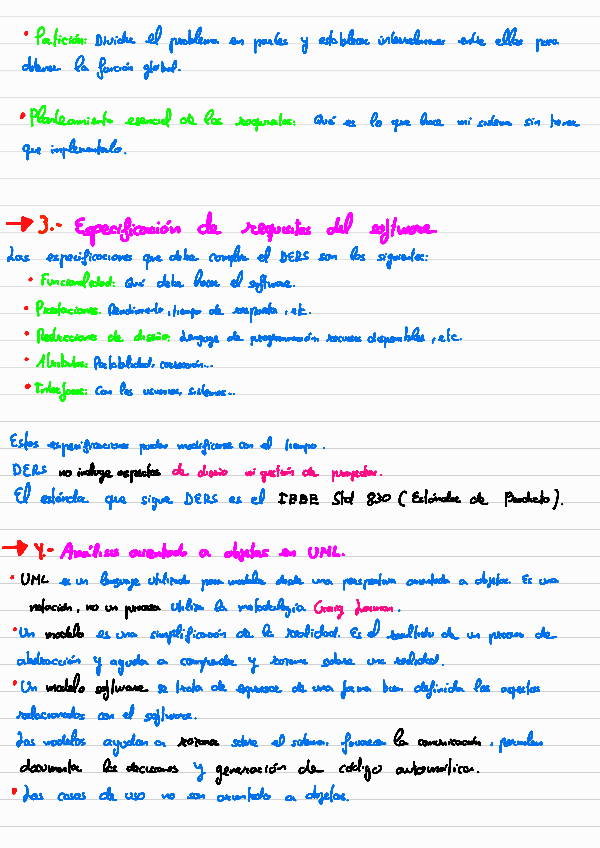 • Partición: Dividir el problema en partes y establecer interrelaciones entre ellas para
obtener la función global.
• Planteamiento esencial de los requisitos: Qué es lo que hace mi sistema sin tener
que implementarlo.
→ 3.- Especificación de requisitos del software
Las especificaciones que debe cumplir el DERS son las siguientes:
• Funcionalidad: Qué debe hacer el software.
• Prestaciones: Rendimiento, tiempo de respuesta, etc.
• Restricciones de diseño: Lenguaje de programación, recursos disponibles, etc.
• Atributos: Portabilidad, corrección...
• Interfaces: Con los usuarios, sistemas...
Estas especificaciones pueden modificarse con el tiempo.
DERS no incluye aspectos de diseño ni gestión de proyectos.
El estándar que sigue DERS es el IEEE Std 830 (Estándar de Producto).
→ 4.- Análisis orientado a objetos en UML.
• UML es un lenguaje utilizado para modelar desde una perspectiva orientada a objetos. Es una
notación, no un proceso utiliza la metodología Craig Larman.
• Un modelo es una simplificación de la realidad. Es el resultado de un proceso de
abstracción y ayuda a comprender y razonar sobre una realidad.
• Un modelo software se trata de expresar de una forma bien definida los aspectos
relacionados con el software.
Los modelos ayudan a razonar sobre el sistema, favorecen la comunicación, permiten
documentar las decisiones y generación de código automática.
• Los casos de uso no son orientado a objetos.